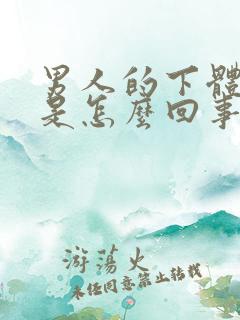 男人的下體
是怎麼回事
游蕩火
未經同意禁止轉載